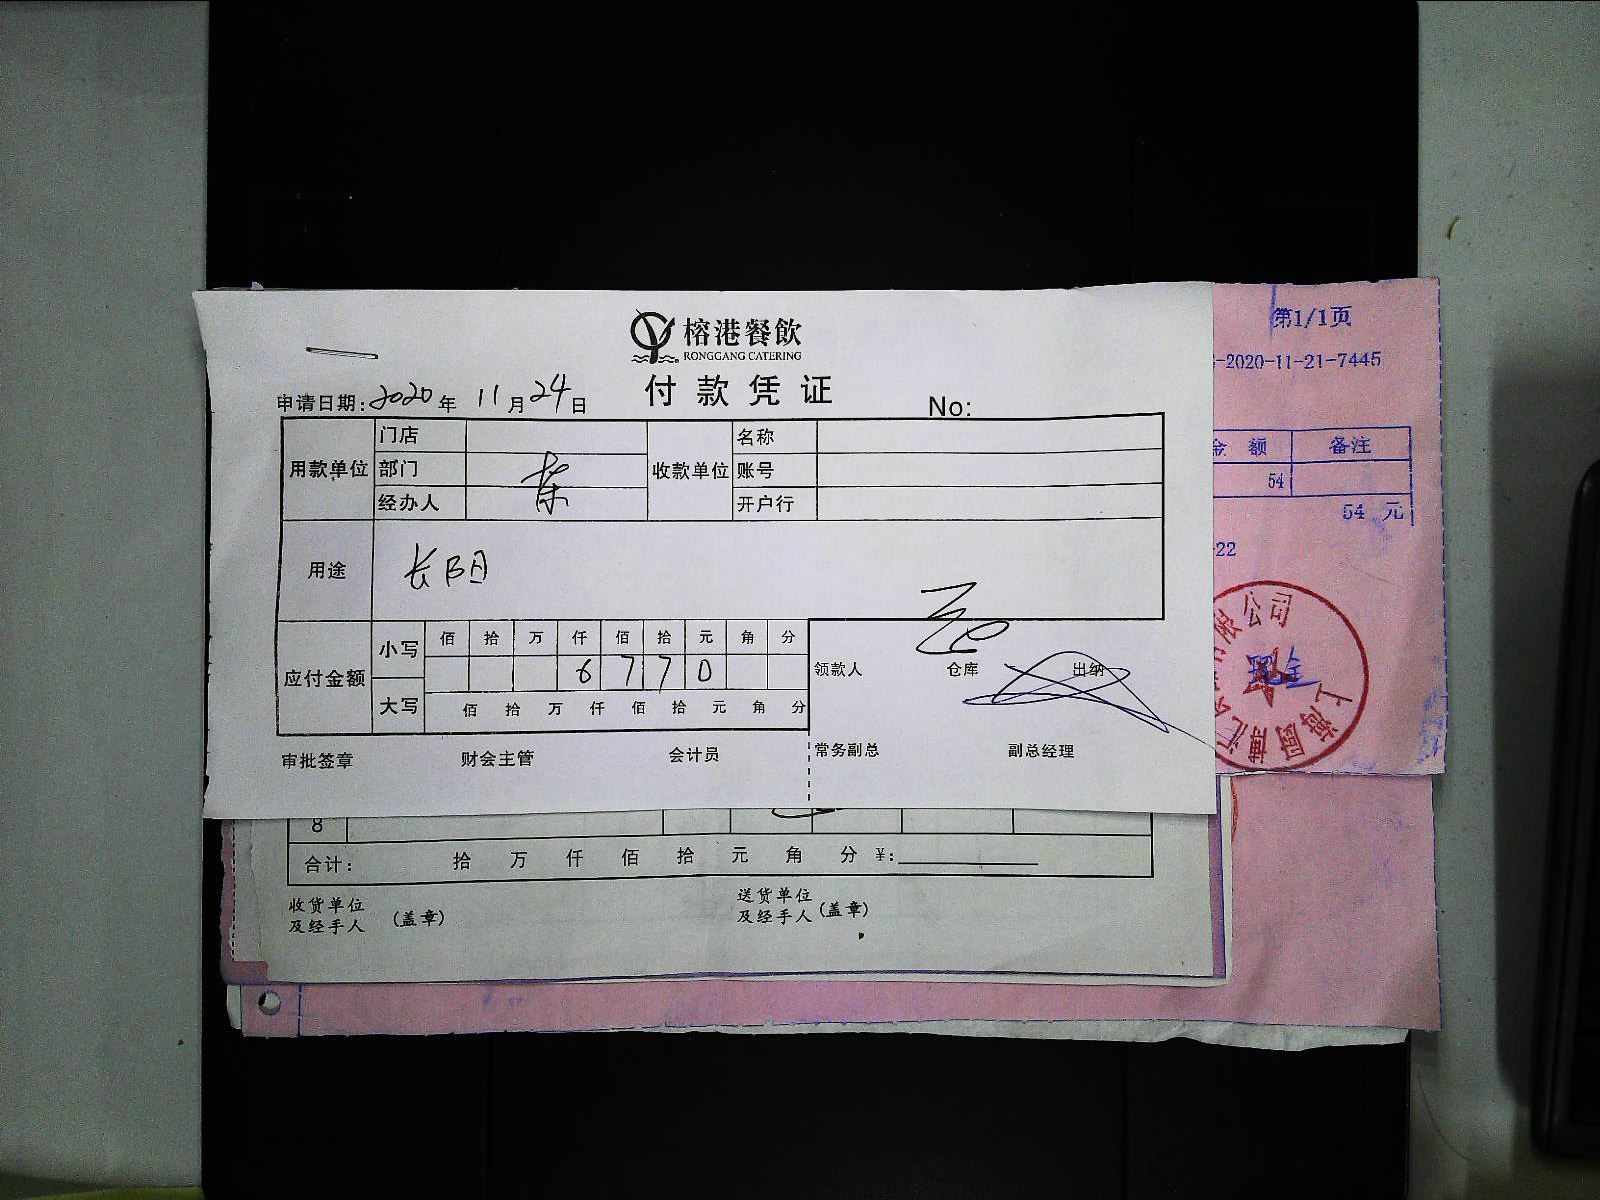 榕港餐飲
RONGGANG CATERING
付款凭证
申请日期: 2020 年 11 月 24 日
No:
用款单位 门店 收款单位 名称
部门 账号
经办人 开户行
用途 长阳
应付金额 小写 佰 拾 万 仟 佰 拾 元 角 分
6 7 7 0
大写 佰 拾 万 仟 佰 拾 元 角 分
领款人 仓库 出纳
审批签章 财会主管 会计员 常务副总 副总经理
第1/1页
-2020-11-21-7445
金 额 备注
54
54 元
-22
公司
现金
上海
8
合计: 拾 万 仟 佰 拾 元 角 分 ¥:
收货单位及经手人 (盖章)
送货单位及经手人 (盖章)